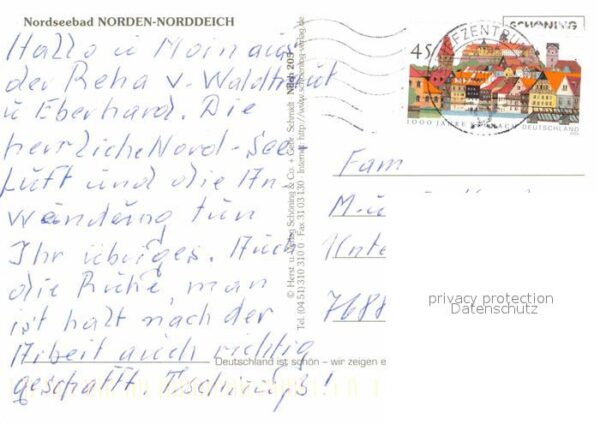 Nordseebad NORDEN-NORDDEICH
Hallo u Moin aus
der Reha v. Waldtraut
u Eberhard. Die
herrliche Nord-See
Luft und die An
wendung tun
Ihr übriges. Auch
die Ruhe, man
ist halt nach der
Arbeit auch richtig
geschafft. Tschüß!
© Herst u. Verlag Schöning & Co. + Gebr. Schmidt
Tel. (04 51) 310 310 0 Fax 31 03 130 Internet: http://www.schoening-verlag.de
Deutschland ist schön – wir zeigen e
SCHÖNING
FZENTRUM
45
1000 JAHRE KRONACH DEUTSCHLAND
Fam
M. u
Unte
7688
privacy protection
Datenschutz